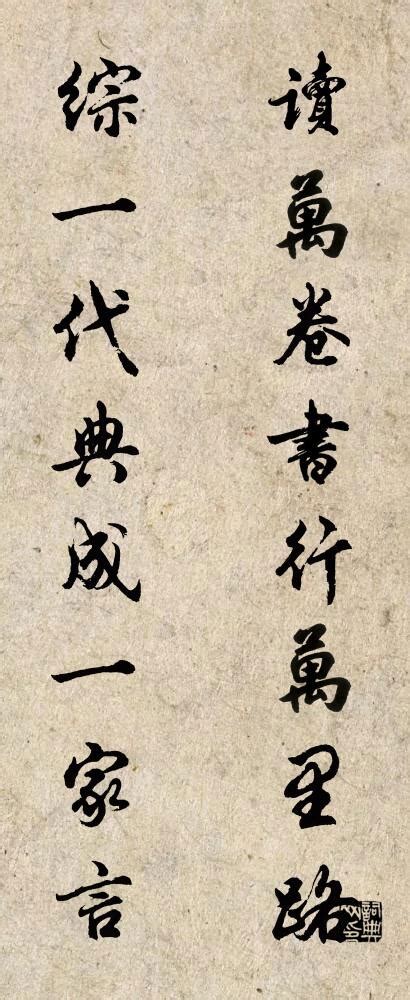 讀萬卷書行萬里路
綜一代典成一家言